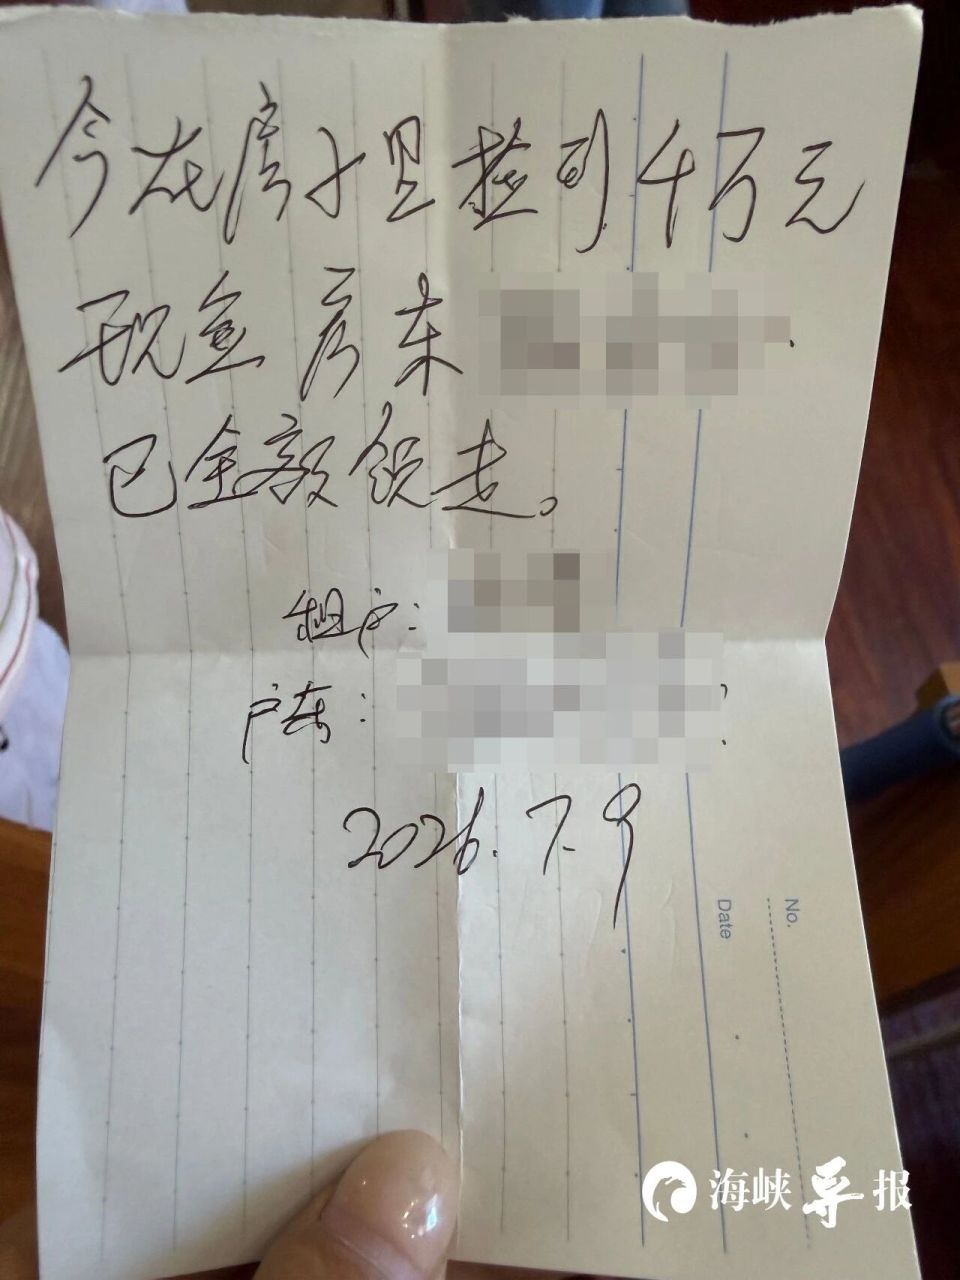 今在房子里捡到4万元
现金 房东
已全额领走。
租户：
户东：
2026.7.9
No.
Date
海峡导报